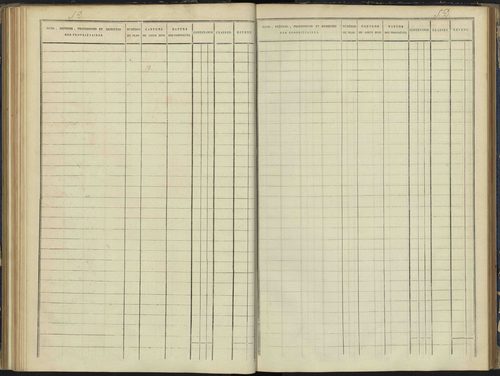 NOMS, PRÉNOMS, PROFESSIONS ET DEMEURES
DES PROPRIÉTAIRES.
NUMÉROS
DU PLAN.
CANTONS
OU LIEUX DITS
NATURE
DES PROPRIÉTÉS.
CONTENANCE
CLASSES.
REVENU
NOMS, PRÉNOMS, PROFESSIONS ET DEMEURES
DES PROPRIÉTAIRES.
NUMÉROS
DU PLAN.
CANTONS
OU LIEUX DITS
NATURE
DES PROPRIÉTÉS.
CONTENANCE
CLASSES.
REVENU